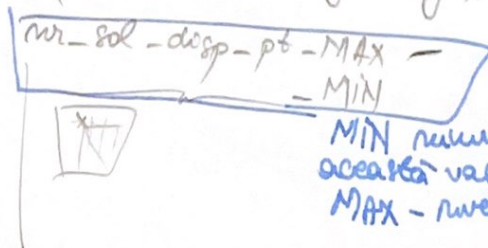 nr_sol_disp_pt_MAX -
- MIN
MIN
această
MAX -